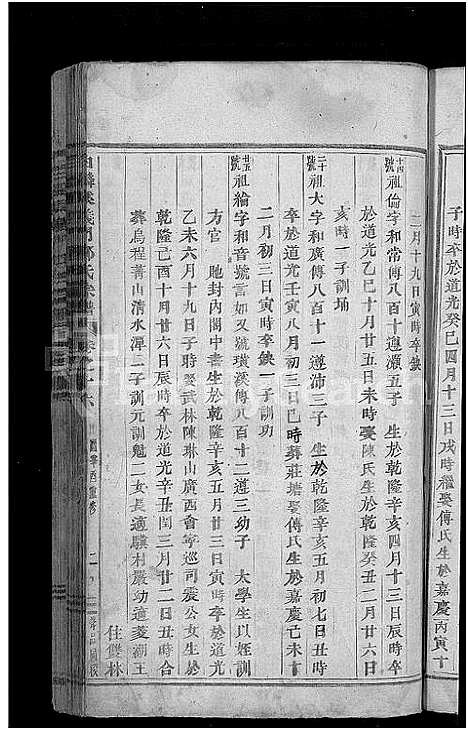 子時卒於道光癸巳四月十三日戌時繼娶傅氏生於嘉慶丙寅十
二月十九日寅時卒缺
十四號祖倫字和常傳八百十遵灝五子 生於乾隆辛亥四月十三日辰時卒
於道光乙巳十月廿五日未時娶陳氏生於乾隆癸丑二月廿六日
亥時一子訓埇
二十號祖大字和廣傳八百十一遵沛三子 生於乾隆辛亥五月初七日丑時
卒於道光壬寅八月初三日巳時葬莊塘娶傅氏生於嘉慶己未十
二月初三日寅時卒缺一子訓功
廿五號祖綸字和音號言如又號璜溪傳八百十二遵三幼子 太學生以姪訓
方官 貤封內閣中書生於乾隆辛亥五月廿三日寅時卒於道光
乙未六月十九日子時娶武林陳琳山廣西會甯巡司震公女生於
乾隆己酉十月廿六日辰時卒於道光辛丑閏三月廿二日丑時合
葬烏程菁山清水潭二子訓元訓魁二女長適驥村嚴功遠菱湖王
住雙林
義門鄭氏宗譜